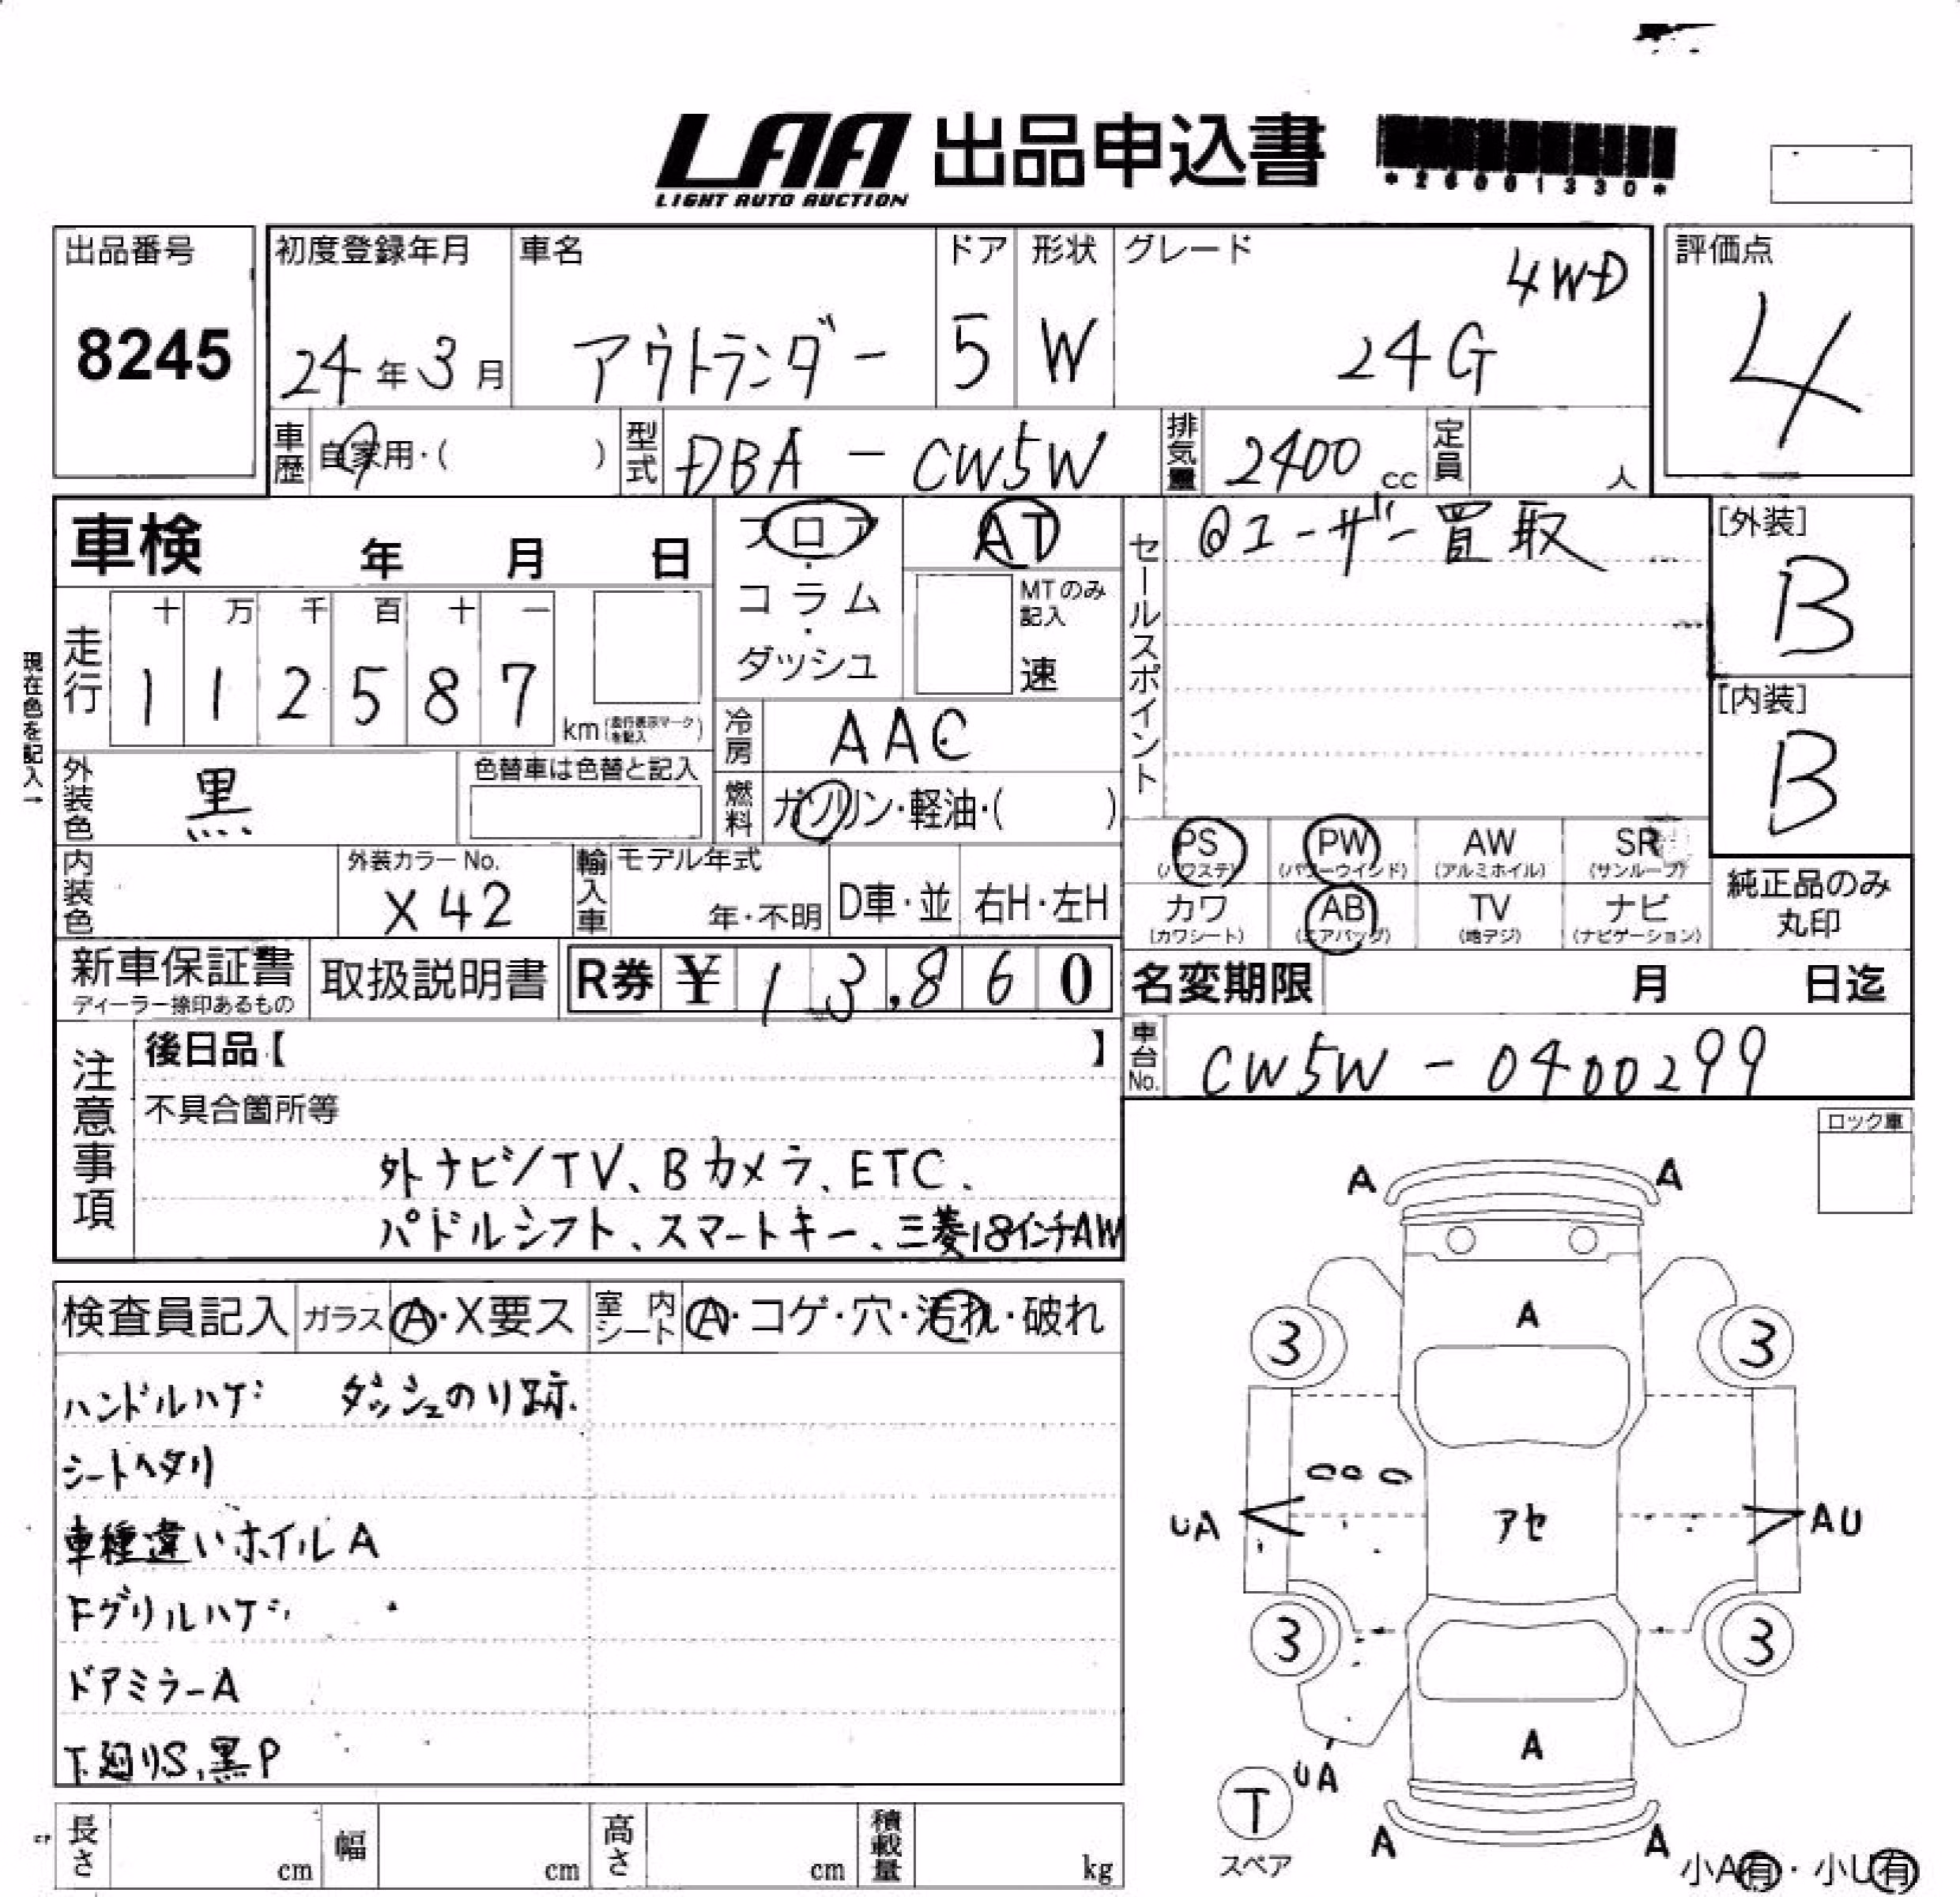 LAA 出品申込書
LIGHT AUTO AUCTION
*26001330*
出品番号
8245
初度登録年月
24年3月
車名
アウトランダー
ドア
5
形状
W
グレード
4WD
24G
評価点
4
車歴
自家用・( )
型式
DBA - CW5W
排気量
2400 cc
定員
人
車検 年 月 日
フロア
・
コラム
・
ダッシュ
AT
MTのみ
記入
速
セールスポイント
@ユーザー買取
[外装]
B
[内装]
B
現在色を記入→
走行
十 万 千 百 十 一
1 1 2 5 8 7
km(走行表示マークを記入)
冷房
AAC
外装色
黒
色替車は色替と記入
燃料
ガソリン・軽油・( )
内装色
外装カラーNo.
X42
輸入車
モデル年式
年・不明
D車・並
右H・左H
PS
(パワステ)
PW
(パワーウインド)
AW
(アルミホイル)
SR
(サンルーフ)
カワ
(カワシート)
AB
(エアバッグ)
TV
(地デジ)
ナビ
(ナビゲーション)
純正品のみ
丸印
新車保証書
ディーラー捺印あるもの
取扱説明書
R券 ¥ 13,860
名変期限 月 日迄
車台No.
CW5W - 0400299
注意事項
後日品【 】
不具合箇所等
外ナビ/TV、Bカメラ、ETC、
パドルシフト、スマートキー、三菱18インチAW
ロック車
検査員記入
ガラス
A・X要ス
室内シート
A・コゲ・穴・汚れ・破れ
ハンドルハゲ ダッシュのり跡.
シートヘタリ
車種違いホイルA
FグリルハゲS
ドアミラーA
下廻りS、黒P
A A
A
3 3
UA アセ AU
3 3
A
UA
T
スペア
A A
小A有・小U有
長さ cm
幅 cm
高さ cm
積載量 kg